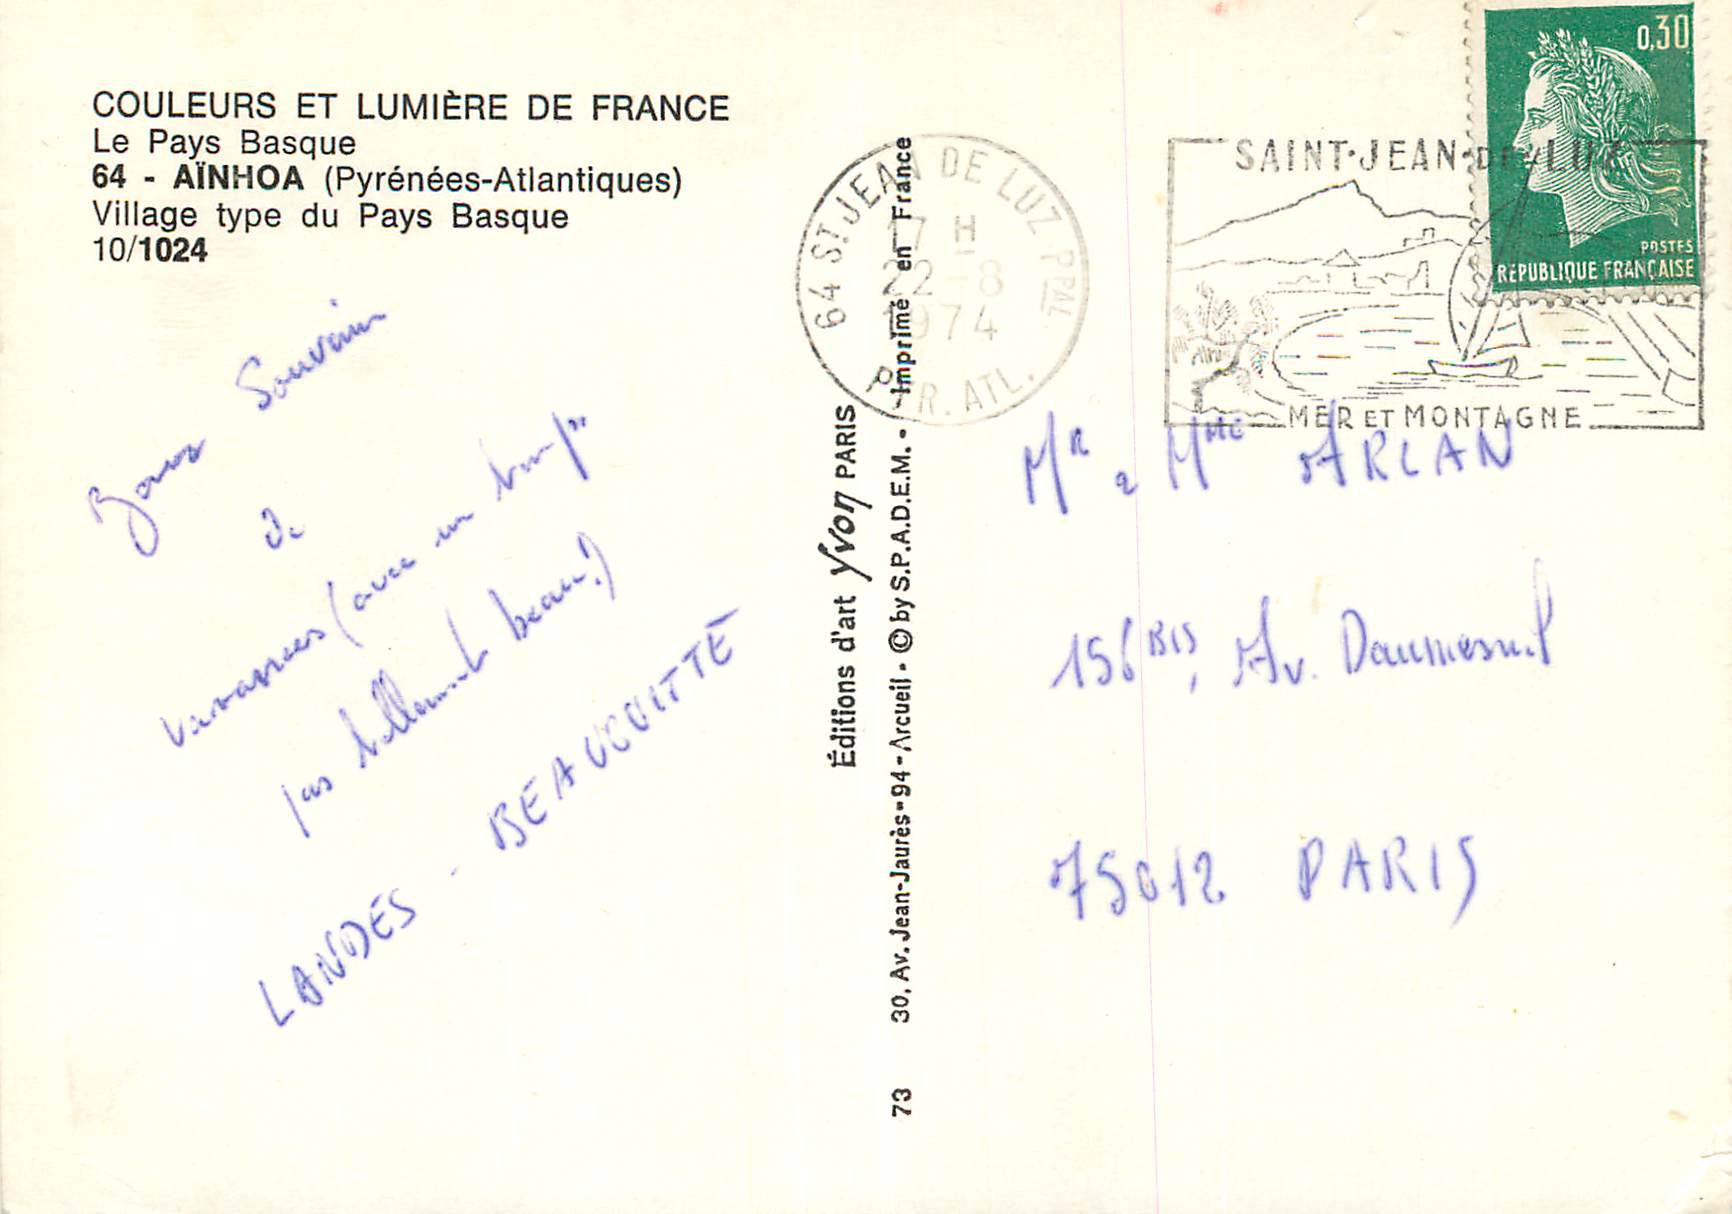 COULEURS ET LUMIÈRE DE FRANCE
Le Pays Basque
64 - AÏNHOA (Pyrénées-Atlantiques)
Village type du Pays Basque
10/1024
Bons Souvenirs
de
vacances (avec un temps
pas tellement beau!)
LANDES - BEAUCOUITTE
Éditions d'art Yvon PARIS
73 30, Av. Jean-Jaurès - 94 - Arcueil - © by S.P.A.D.E.M. - Imprimé en France
64 ST JEAN DE LUZ PPAL
17 H
22 - 8
1974
PYR. ATL.
SAINT-JEAN-DE-LUZ
MER ET MONTAGNE
0,30
POSTES
RÉPUBLIQUE FRANÇAISE
MR & MME ARLAN
156 BIS, Av. Daumesnil
75012 PARIS